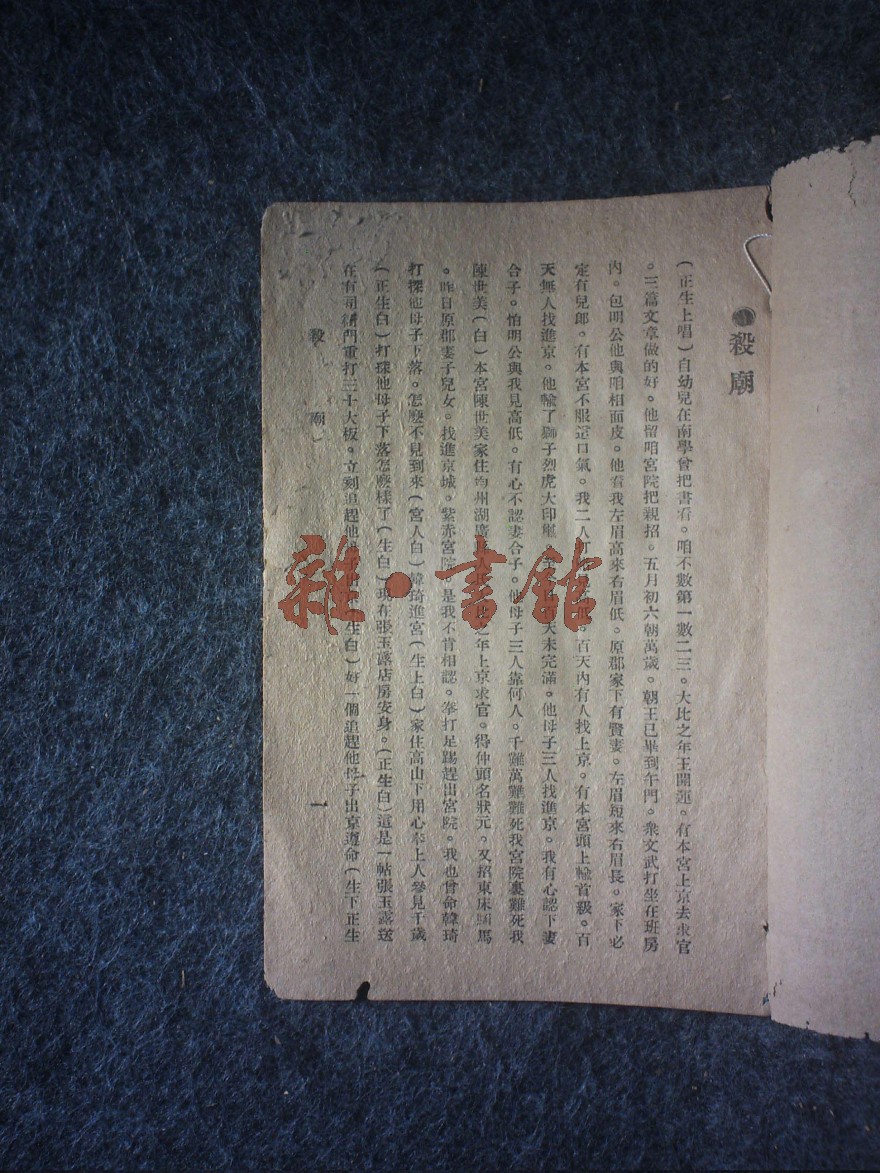 ●殺廟
(正生上唱)自幼兒在南學曾把書看。咱不數第一數二三。大比之年王開運。有本宮上京去求官
。三篇文章做的好。他留咱宮院把親招。五月初六朝萬歲。朝王已畢到午門。衆文武打坐在班房
內。包明公他與咱相面皮。他看我左眉高來右眉低。原郡家下有賢妻。左眉短來右眉長。家下必
定有兒郎。有本宮不服這口氣。我二人 低。百天內有人找上京。有本宮頭上輸首級。百
天無人找進京。他喩了獅子烈虎大印 天未完滿。他母子三人找進京。我有心認下妻
合子。怕明公與我見高低。有心不認妻合子。他母子三人靠何人。千難萬難難死我宮院裏難死我
陳世美(白)本宮陳世美家住均州湖廣 之年上京求官。得仲頭名狀元。又招東床駙馬
。昨日原郡妻子兒女。找進京城。紫赤宮院 是我不肯相認。拳打足踢趕出宮院。我也曾命韓琦
打探他母子下落。怎麽不見到來(宮人白)韓琦進宮(生上白)家住高山下用心奉上人參見千歲
(正生白)打探他母子下落怎麽樣了(生白)現在張玉露店房安身。(正生白)這是一帖張玉露送
在有司衙門重打三十大板。立刻追趕他 (生白)好一個追趕他母子出京遵命(生下正生
殺 廟 一
雜·書館